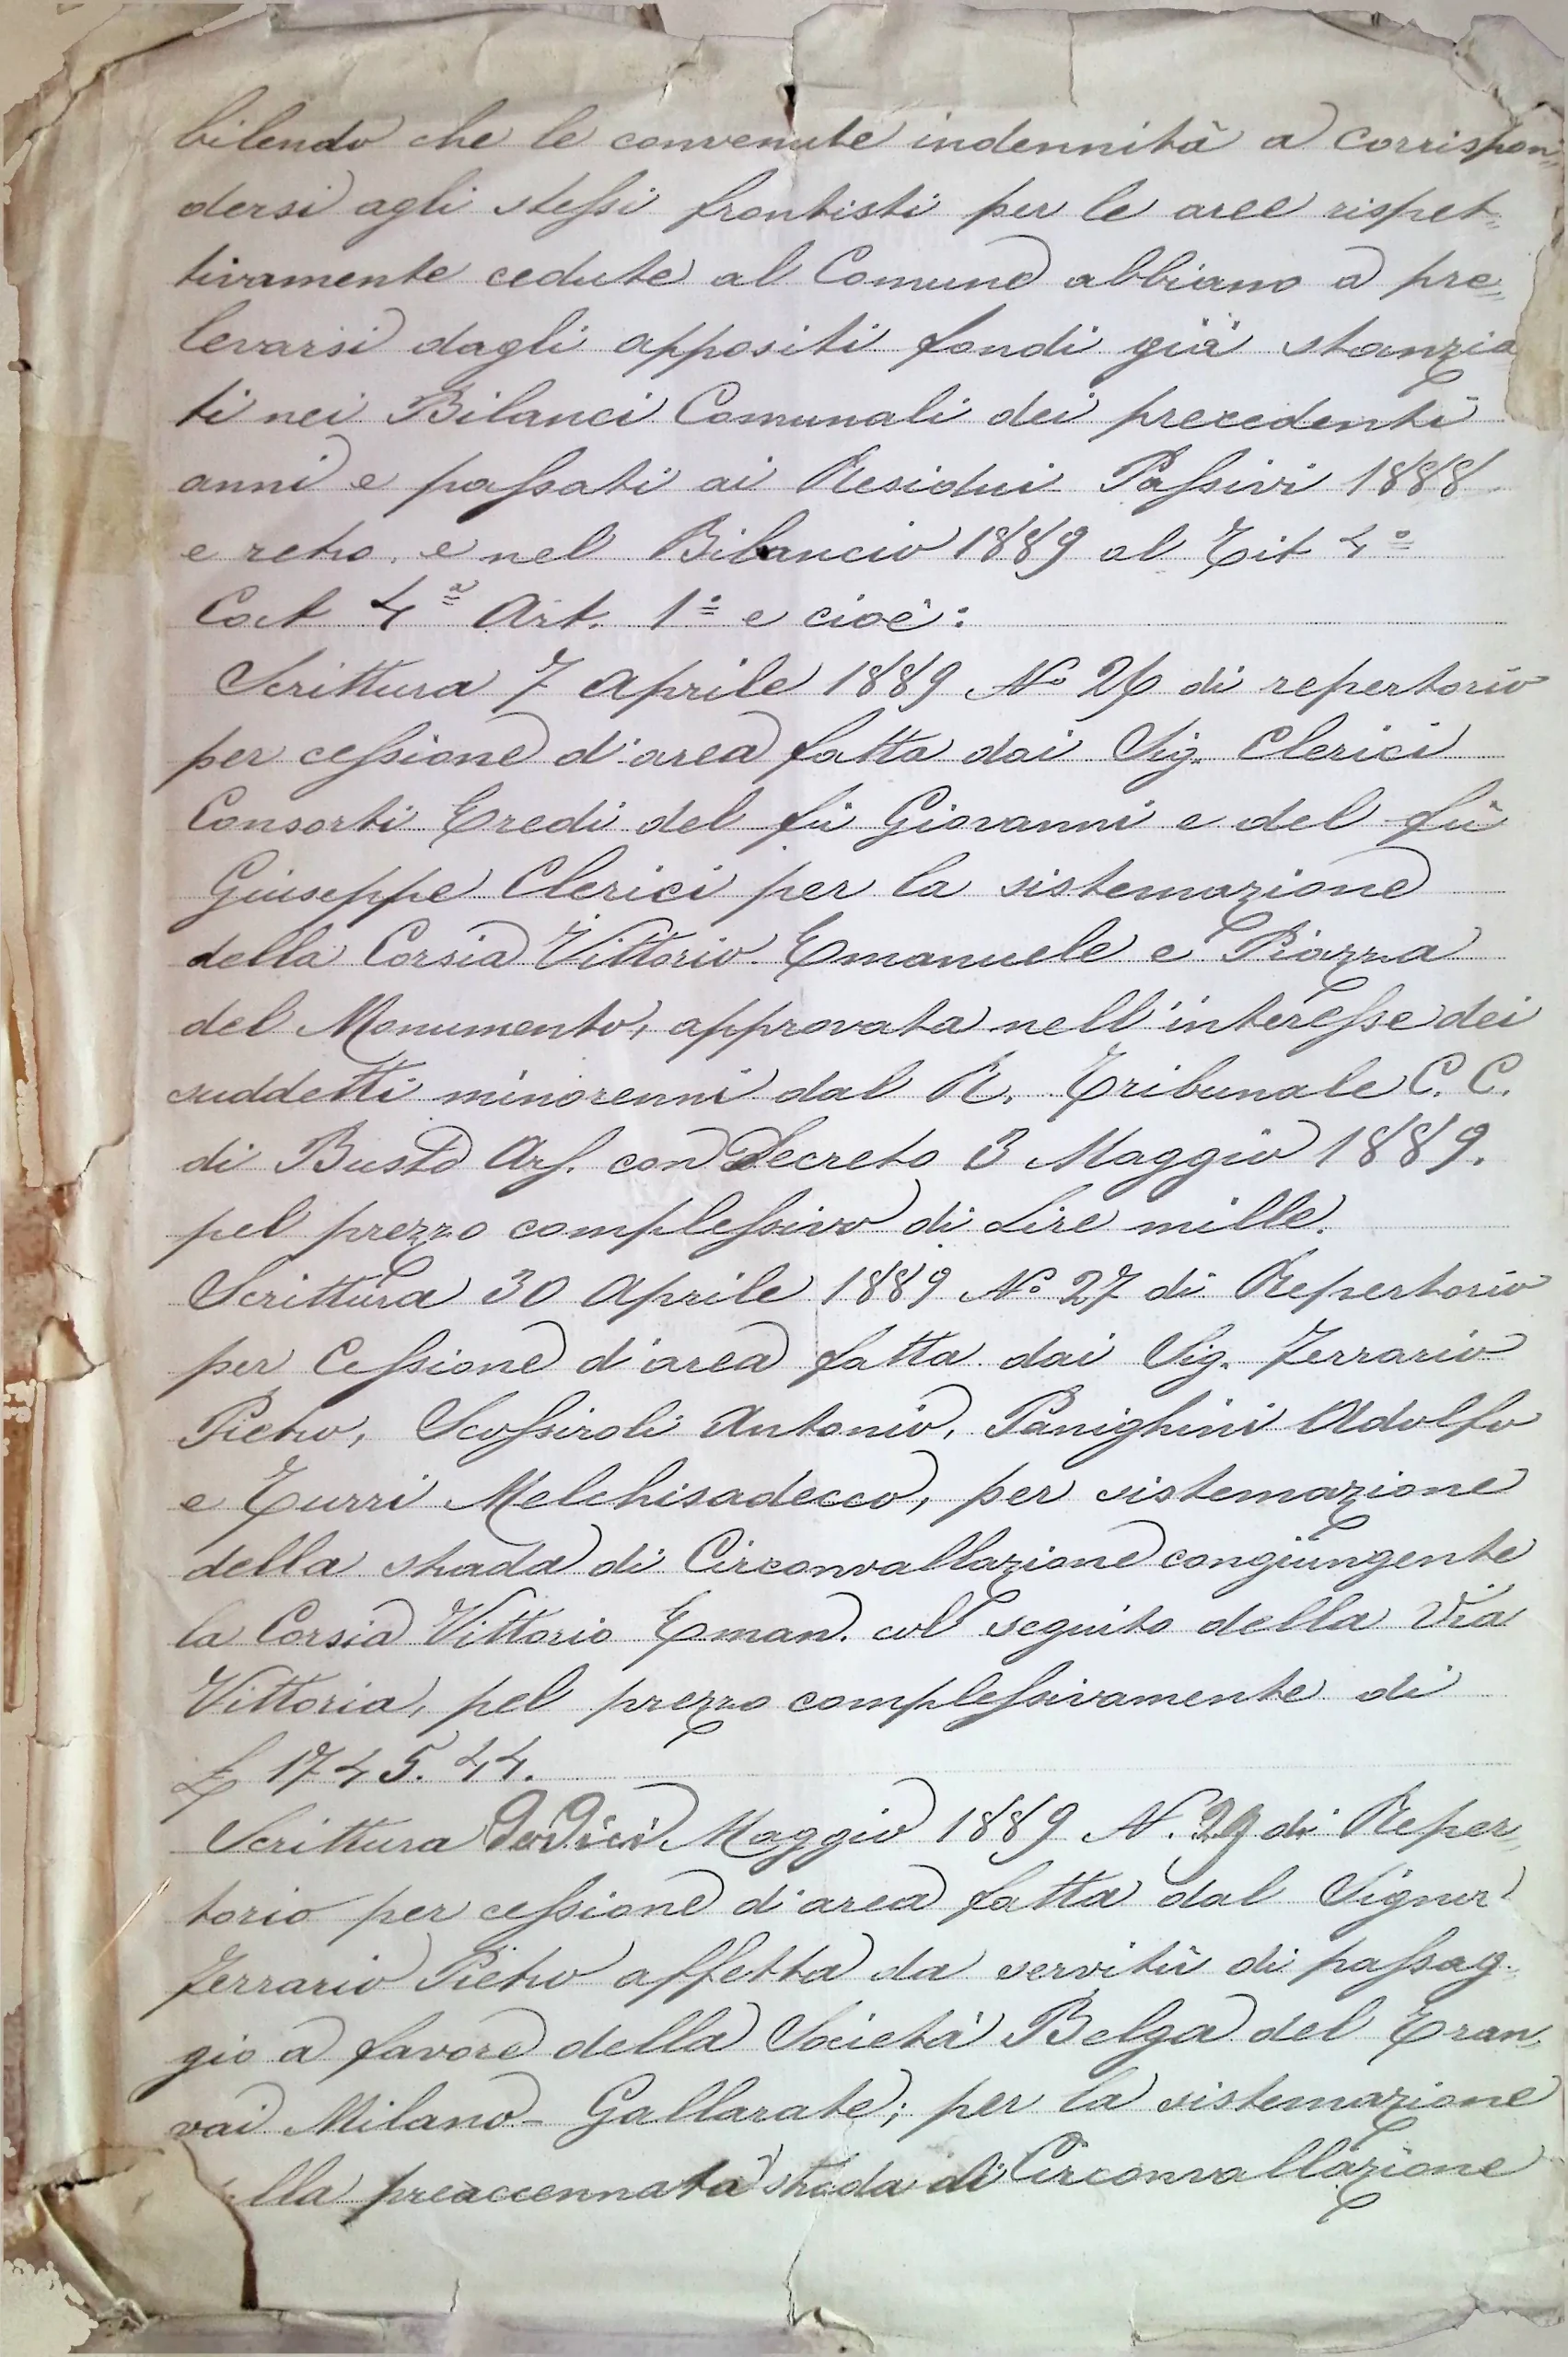 bilendo che le convenute indennità a corrispon„
dersi agli stessi frontisti per le aree rispet„
tivamente cedute al Comune abbiano a pre„
levarsi dagli appositi fondi già stanzia
ti nei Bilanci Comunali dei precedenti
anni e passati ai Residui Passivi 1888
e retro, e nel Bilancio 1889 al Tit 4º
Cat 4ª Art. 1º e cioè:
Scrittura 7 Aprile 1889 Nº 26 di repertorio
per cessione d'area fatta dai Sig. Clerici
Consorti Eredi del fù Giovanni e del fù
Giuseppe Clerici per la sistemazione
della Corsia Vittorio Emanuele e Piazza
del Monumento, approvata nell'interesse dei
suddetti minorenni dal R. Tribunale C. C.
di Busto Ars. con Decreto 3 Maggio 1889.
pel prezzo complessivo di Lire mille.
Scrittura 30 Aprile 1889 Nº 27 di Repertorio
per Cessione d'area fatta dai Sig. Ferrario
Pietro, Scossiroli Antonio, Panighini Adolfo
e Turri Melchisadecco, per sistemazione
della strada di Circonvallazione congiungente
la Corsia Vittorio Eman. col seguito della Via
Vittoria, pel prezzo complessivamente di
£ 1745.44.
Scrittura dodici Maggio 1889 N. 29 di Reper„
torio per cessione d'area fatta dal Signor
Ferrario Pietro affetta da servitù di passag„
gio a favore della Società Belga del Tran„
vai Milano-Gallarate; per la sistemazione
lla preaccennata strada di Circonvallazione